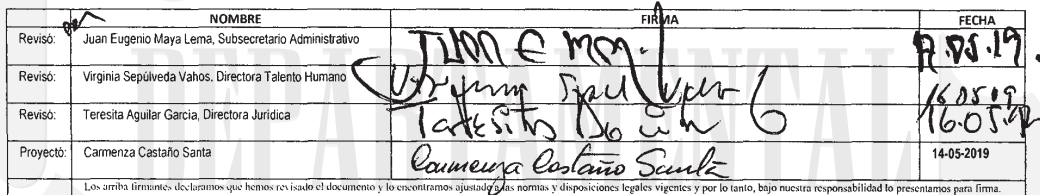 NOMBRE FIRMA FECHA
Revisó: Juan Eugenio Maya Lema, Subsecretario Administrativo Juan E M 17.05.19.
Revisó: Virginia Sepúlveda Vahos, Directora Talento Humano Virginia Sepúlveda 16.05.19
Revisó: Teresita Aguilar García, Directora Jurídica Teresita Aguilar 16.05.19
Proyectó: Carmenza Castaño Santa Carmenza Castaño Santa 14-05-2019
Los arriba firmantes declaramos que hemos revisado el documento y lo encontramos ajustado a las normas y disposiciones legales vigentes y por lo tanto, bajo nuestra responsabilidad lo presentamos para firma.
DEPARTAMENTAL